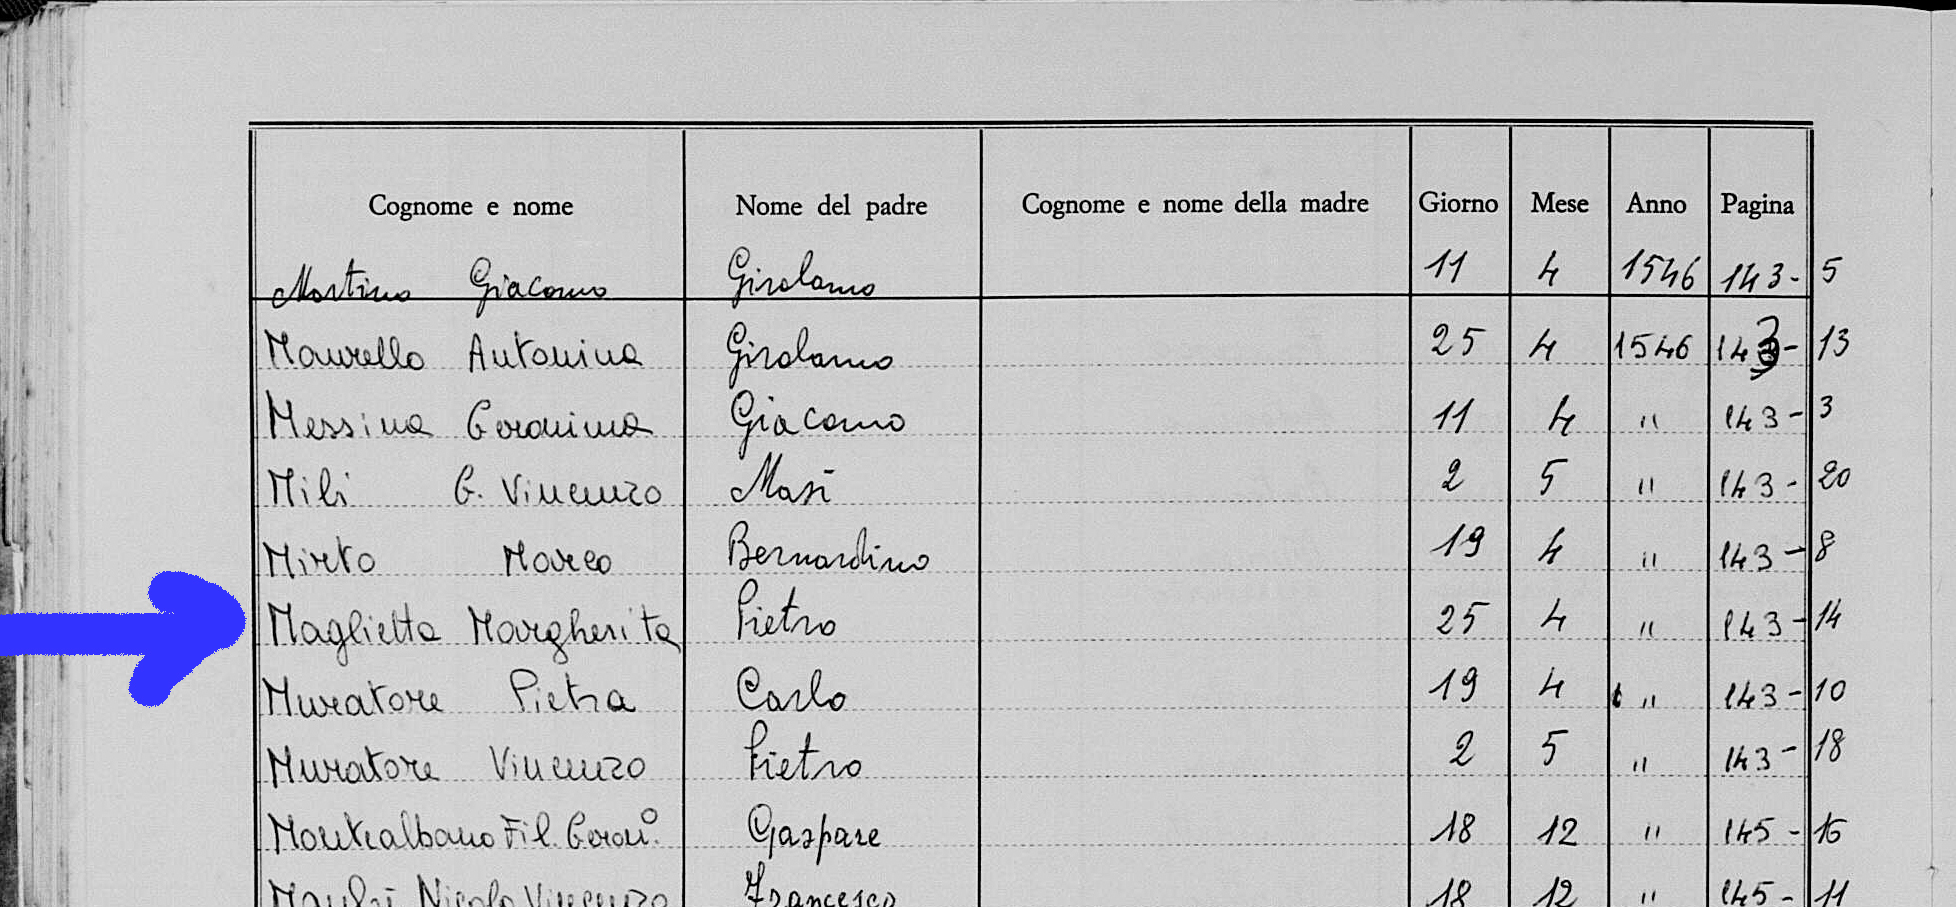 Cognome e nome Nome del padre Cognome e nome della madre Giorno Mese Anno Pagina
Martino Giacomo Girolamo 11 4 1546 143- 5
Maurello Antonina Girolamo 25 4 1546 143- 13
Messina Geronima Giacomo 11 4 " 143- 3
Mili G. Vincenzo Masi 2 5 " 143- 20
Mirto Marco Bernardino 19 4 " 143- 8
Maglietta Margherita Pietro 25 4 " 143- 14
Muratore Pietra Carlo 19 4 " 143- 10
Muratore Vincenzo Pietro 2 5 " 143- 18
Montealbano Fil. Geron.º Gaspare 18 12 " 145- 16
Nicolo Vincenzo Francesco 18 12 " 145- 11